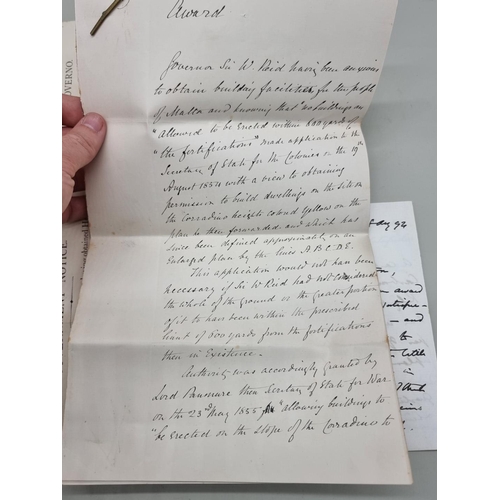 Award
Governor Sir W. Reid having been desirous
to obtain building facilities for the people
of Malta and knowing that "no buildings are
"allowed to be erected within 600 yards of
"the fortifications" made application to the
Secretary of State for the Colonies on the 19th
August 1854 with a view to obtaining
permission to build dwellings on the site on
the Corradino heights colored Yellow on the
plan he then forwarded, and which has
since been defined approximately on an
Enlarged plan by the lines A.B.C.D.E.
This application would not have been
necessary if Sir W. Reid had not considered
the whole of the ground or the greater portion
of it to have been within the prescribed
limit of 600 yards from the fortifications
then in Existence.
Authority was accordingly granted by
Lord Panmure then Secretary of State for War
on the 23rd May 1855 for "allowing buildings to
"be Erected on the slope of the Corradino to
GOVERNO.
NOTICE
award
and
to
in